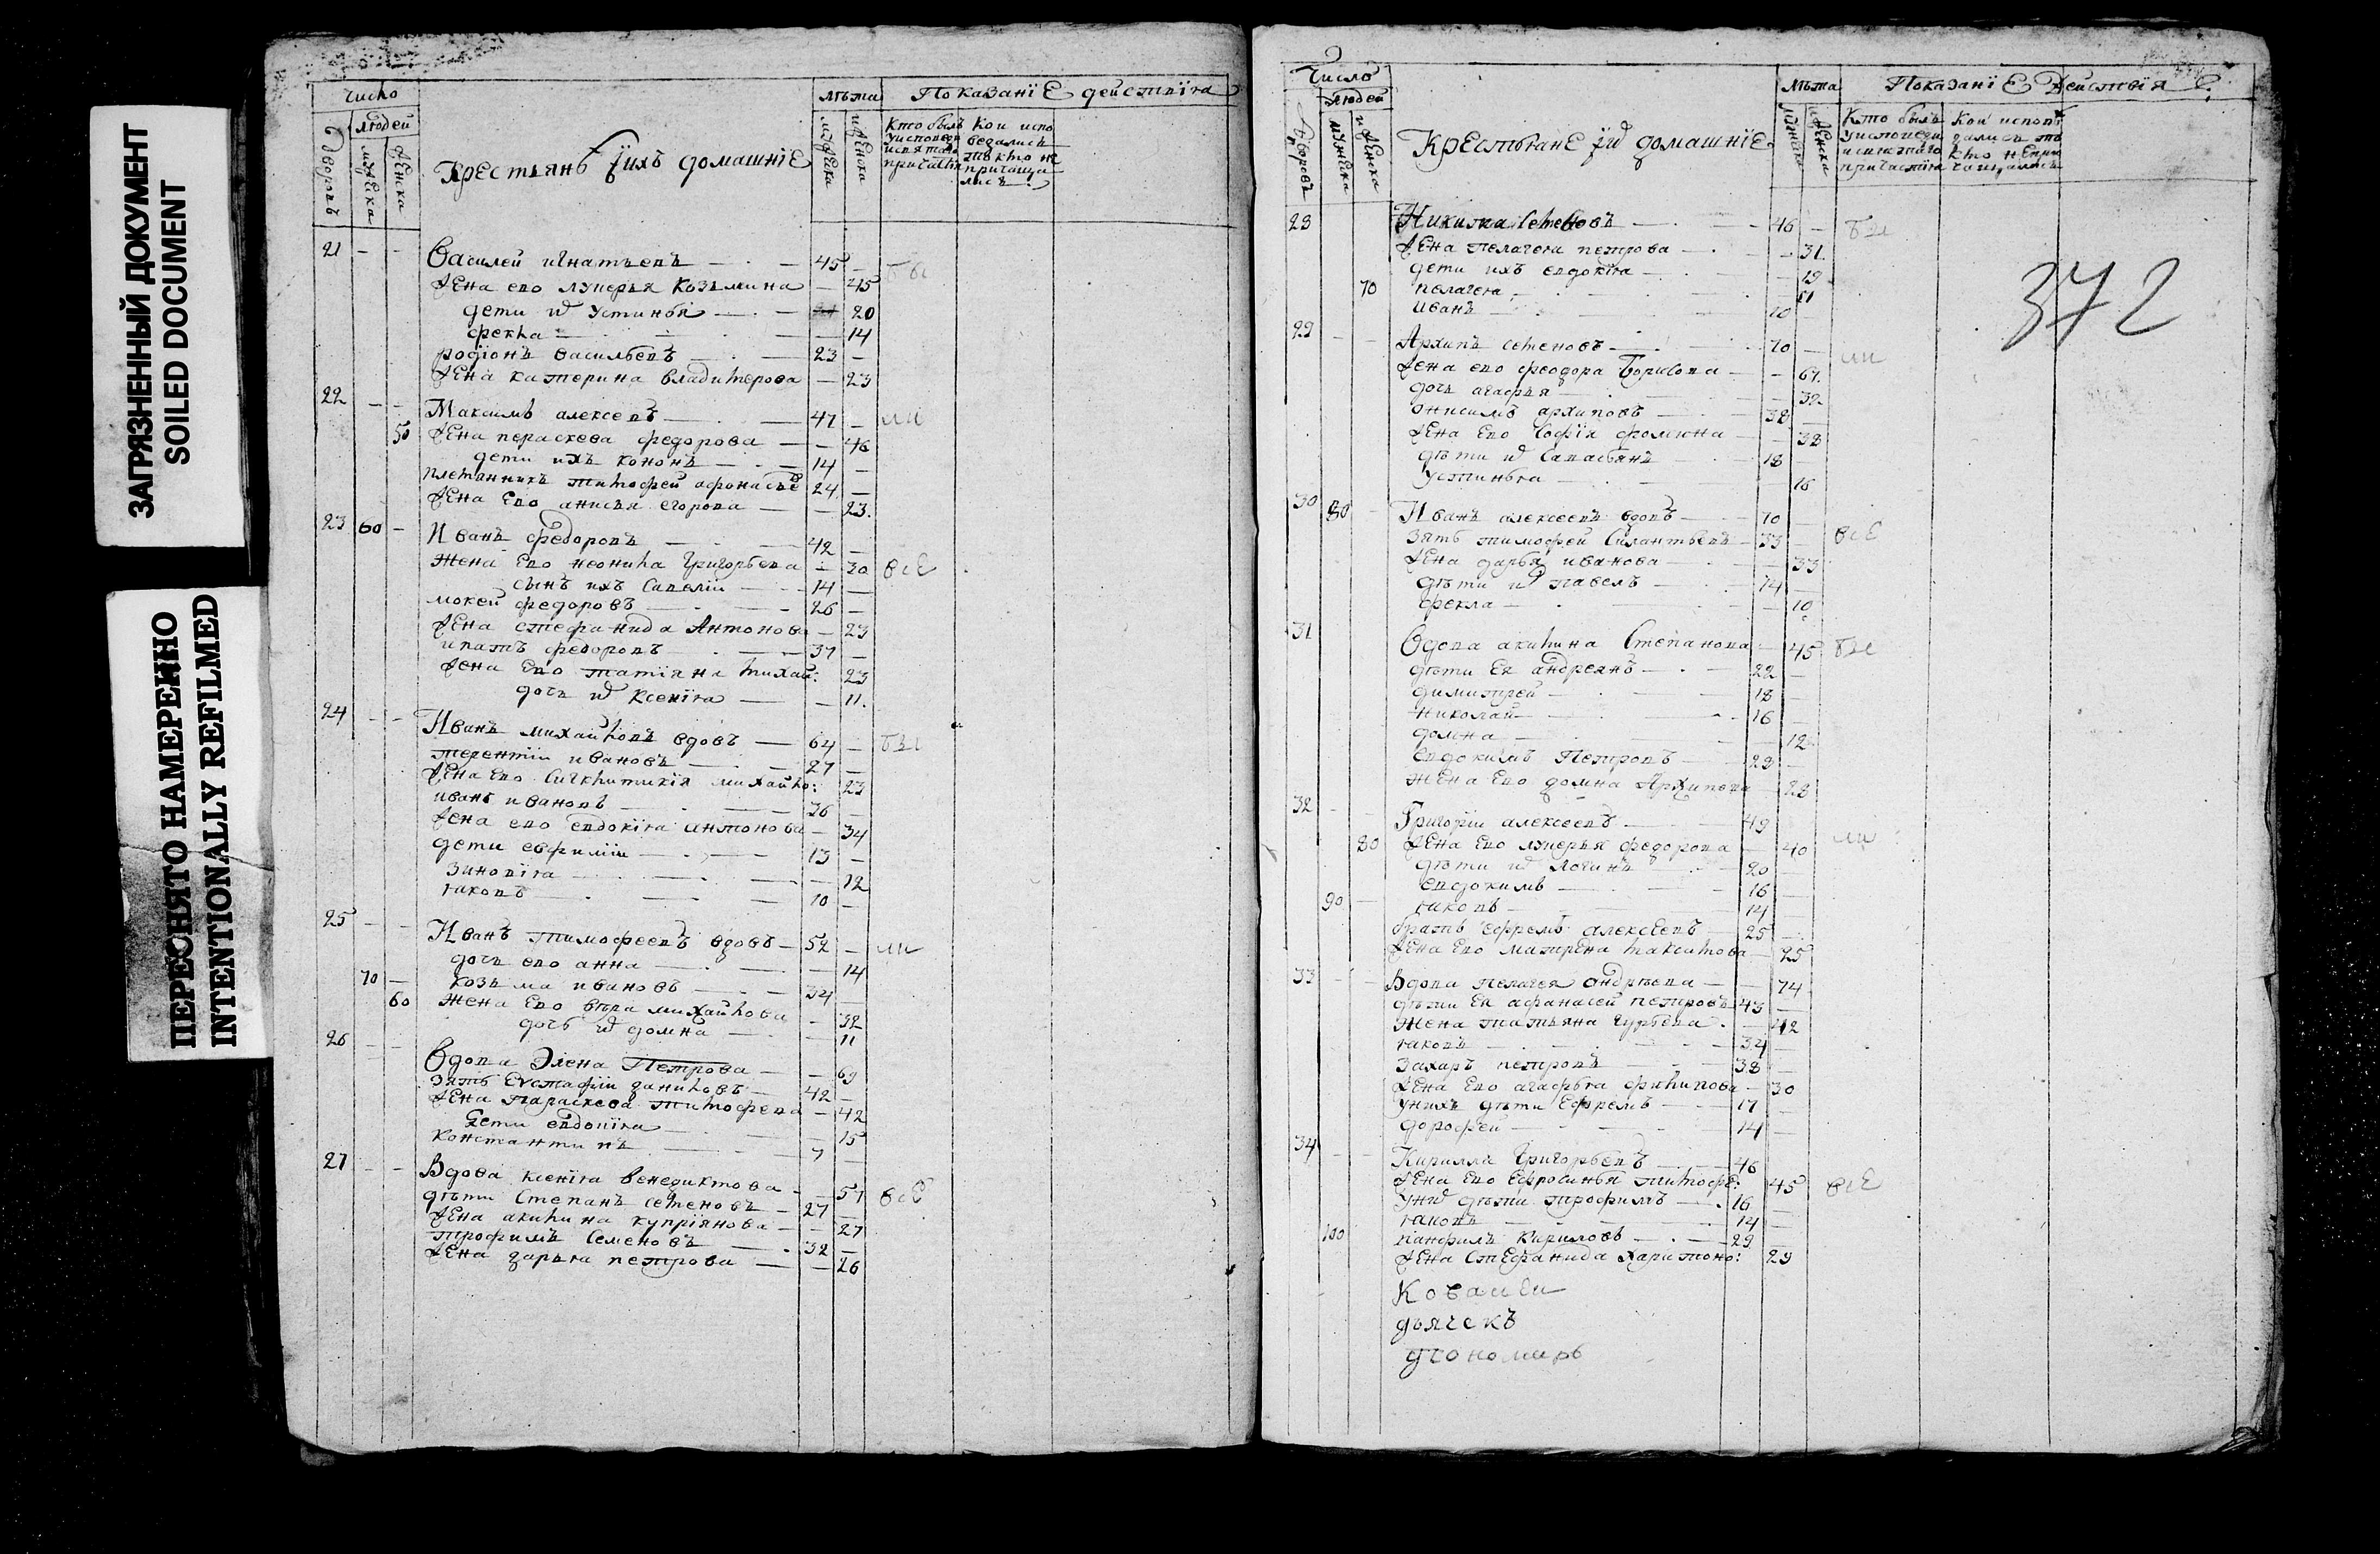 ЗАГРЯЗНЕННЫЙ ДОКУМЕНТ
SOILED DOCUMENT
ПЕРЕСНЯТО НАМЕРЕННО
INTENTIONALLY REFILMED
Число
людей
Дворовъ
мужеска
женска
Крестьянѣ и ихъ домашніе
лѣта
мужеска
женска
Показаніе действія
Кто былъ Кои испо
ведались
причащи
лись
21 - - Василей игнатьевъ 45 - бы
жена ево лукерья козьмина - 45
дети их устинья 20
фекла 14
родіонъ васильевъ 23 -
жена катерина владимерова - 23
22 - - Максимъ алексевъ 47 - ли
50 жена пераскева федорова - 46
дети ихъ кононъ 14 -
племянникъ тимофей афонасье 24 -
жена ево анисья егорова - 23.
23 60 - Иванъ федоровъ 42 -
жена ево неонила григорьева - 30 все
сынъ ихъ савелій 14 -
мокей федоровъ 26 -
жена стефанида Антонова - 23
ипатъ федоровъ 37 -
жена ево татіяна михай: 23
дочь их ксенія - 11.
24 - - Иванъ михайловъ вдовъ 64 - бы
терентій ивановъ 27 -
жена ево михайло: 23
иванъ ивановъ 36 -
жена ево евдокія антонова - 34
дети евфимій 13 -
зиновія - 12
яковъ 10 -
25 - - Иванъ тимофеевъ вдовъ 52 - ли
дочь ево анна - 14
70 - козьма ивановъ 34 -
60 жена ево вѣра михайлова - 32
дочь их домна - 11
26 - - Вдова Елена Петрова - 69
зять Евстафій даниловъ 42 -
жена параскева тимофева - 42
дети евдокія - 15
Константинъ 7 -
27 - - Вдова ксенія венедиктова - 57 все
дѣти степанъ семеновъ 27 -
жена акилина купріянова - 27
трофимъ семеновъ 32 -
жена дарья петрова - 26
Число
людей
Дворовъ
мужеска
женска
Крестьяне их домашніе
лѣта
мужеска
женска
Показаніе Действія
Кто былъ Кои исповѣ
у исповеди дались то
и святаго кто непри
причастія чащались
372
28 Никита семеновъ 46 - бы
жена пелагея петрова - 31.
дети ихъ евдокія - 19
70 пелагея 11
иванъ 10
29 - - Архипъ семеновъ 70 - ли
жена ево феодора борисова - 67.
дочь агафья 32
онисимъ архиповъ 38 -
жена ево софія фомина - 38
дѣти их савастьянъ 18 -
устинья 16
30 80 - Иванъ алексеевъ вдовъ 70 -
зять тимофей силантьевъ 33 - все
жена дарья иванова - 33
дѣти их павелъ 14 -
фекла - 10
31 Вдова акилина Степанова - 45 бы
дѣти ея андреянъ 22 -
димитрей 18 -
николай 16 -
домна 12
евдокимъ Петровъ 28 -
жена ево домна Архипова 28
32 - - Григорій алексеевъ 49
80 жена ево лукерья федорова - 40 ли
дѣти их логинъ 20 -
евдокимъ 16 -
90 - яковъ 14 -
братъ ефремъ алексеевъ 25 -
жена ево матрена максимова 25
33 - - Вдова пелагея андреева - 74
дѣти ея афанасей петровъ 43 -
жена татьяна гурьева - 42
яковъ 34 -
захаръ петровъ 38 -
жена ево агафья филипова - 30
у нихъ дѣти ефремъ 17 -
дорофей 14 -
34 - - Кирилла Григорьевъ 46
жена ево Ефросинья тимофе: 45 все
у них дѣти трофимъ 16 -
яковъ 14 -
100 панфилъ кириловъ 29 -
жена стефанида харитоно: 29
дьячекъ